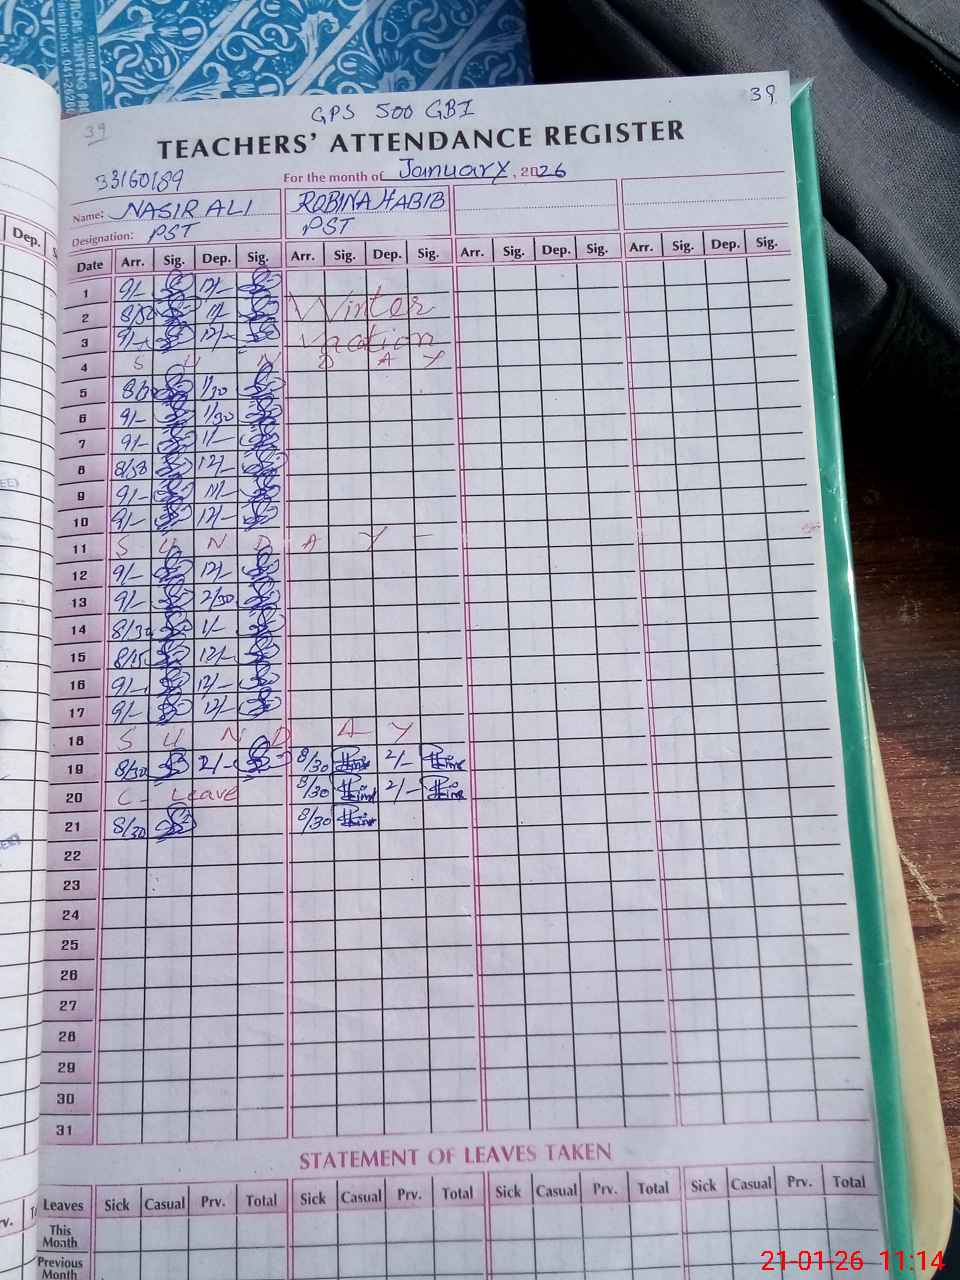 39
GPS 500 GBI
39
TEACHERS' ATTENDANCE REGISTER
33160189
For the month of January, 2026
Name: NASIR ALI ROBINA HABIB
Designation: PST PST
Date Arr. Sig. Dep. Sig. Arr. Sig. Dep. Sig. Arr. Sig. Dep. Sig. Arr. Sig. Dep. Sig.
1 9/-
2 Winter
3 9/- 12/- Vacation
4 S U N D A Y
5 1/30
6 9/- 1/30
7 9/- 1/-
8 12/-
9 9/-
10 9/- 12/-
11 S U N D A Y -
12 9/- 12/-
13 9/- 2/30
14 8/30 1/-
15 8/15 12/-
16 9/- 12/-
17 9/- 12/-
18 S U N D A Y
19 8/30 2/- 8/30 2/-
20 C- Leave 8/30 2/-
21 8/30 8/30
22
23
24
25
26
27
28
29
30
31
STATEMENT OF LEAVES TAKEN
Leaves Sick Casual Prv. Total Sick Casual Prv. Total Sick Casual Prv. Total Sick Casual Prv. Total
This Month
Previous Month
Dep.
21-01-26 11:14